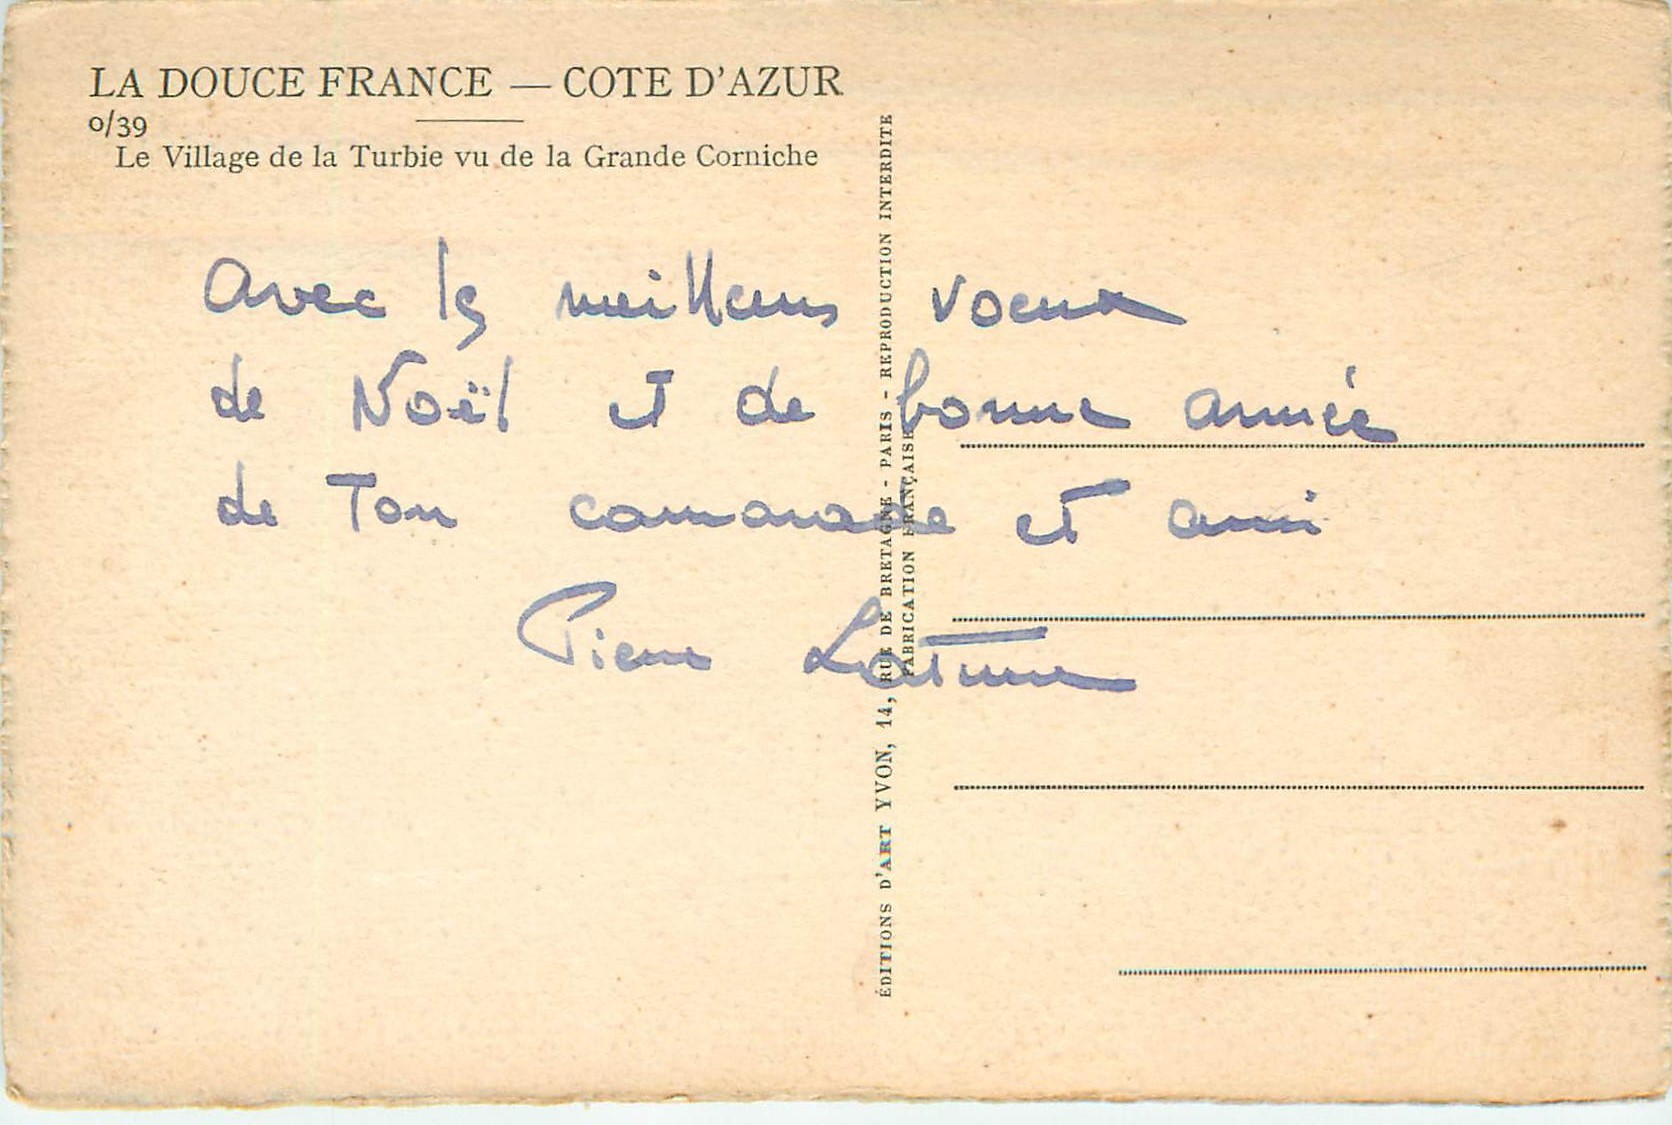 LA DOUCE FRANCE — COTE D'AZUR
0/39
Le Village de la Turbie vu de la Grande Corniche
avec les meilleurs voeux
de Noël et de bonne année
de Ton camarade et ami
Pierre
ÉDITIONS D'ART YVON, 14, RUE DE BRETAGNE - PARIS - REPRODUCTION INTERDITE
FABRICATION FRANÇAISE